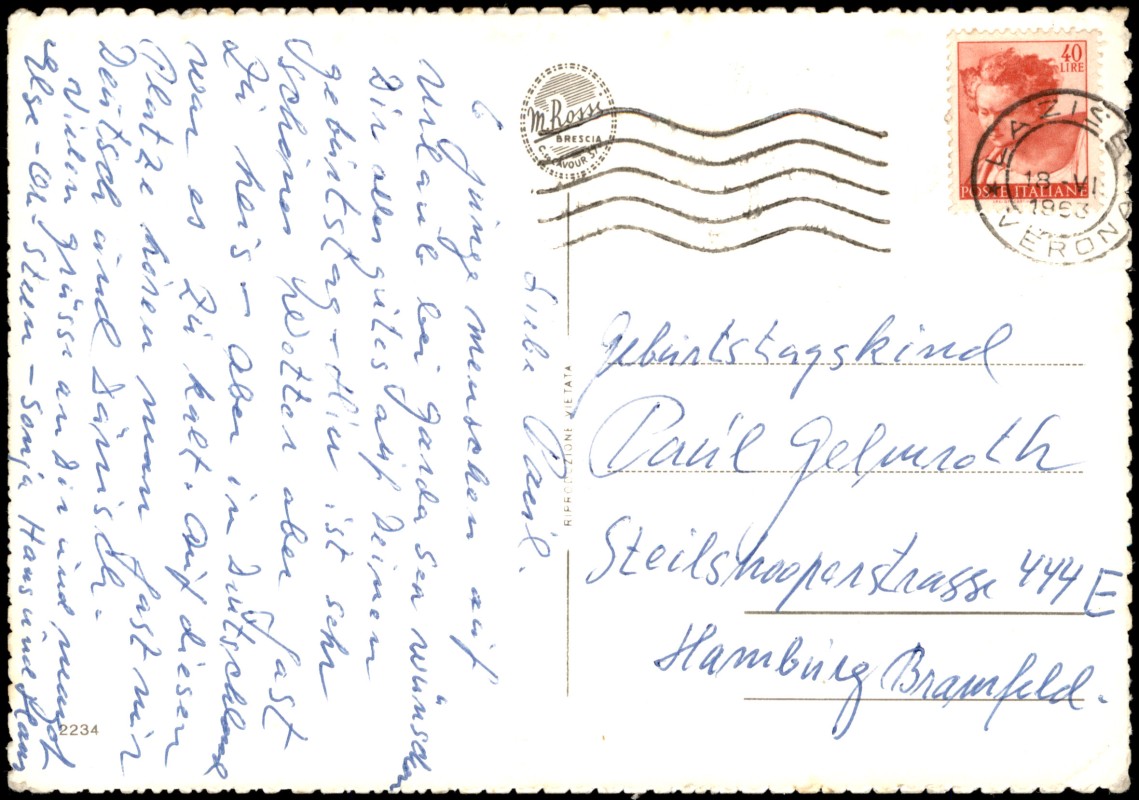 Liebe Paul.
6 junge menschen auf
Urlaub bei garda sea wünschen
Dir alles gutes auf Deinen
gebürtstag - Hier ist sehr
schönes Wetter aber fast
zu heis - aber in Deutschland
war es zu kalt. auf diesen
Platze hören man fast nur
Deutsch und Dänisch -
Vielen grüsse an Dir und
Else - Steen - Sonja Hans und Hans
2234
m. Rossi
BRESCIA
C. CAVOUR
RIPRODUZIONE VIETATA
40
LIRE
POSTE ITALIANE
LAZISE
18 - VI
1963
VERONA
Gebürtstagskind
Paul Gelmroth
Steilshooperstrasse 444 E
Hamburg Bramfeld.